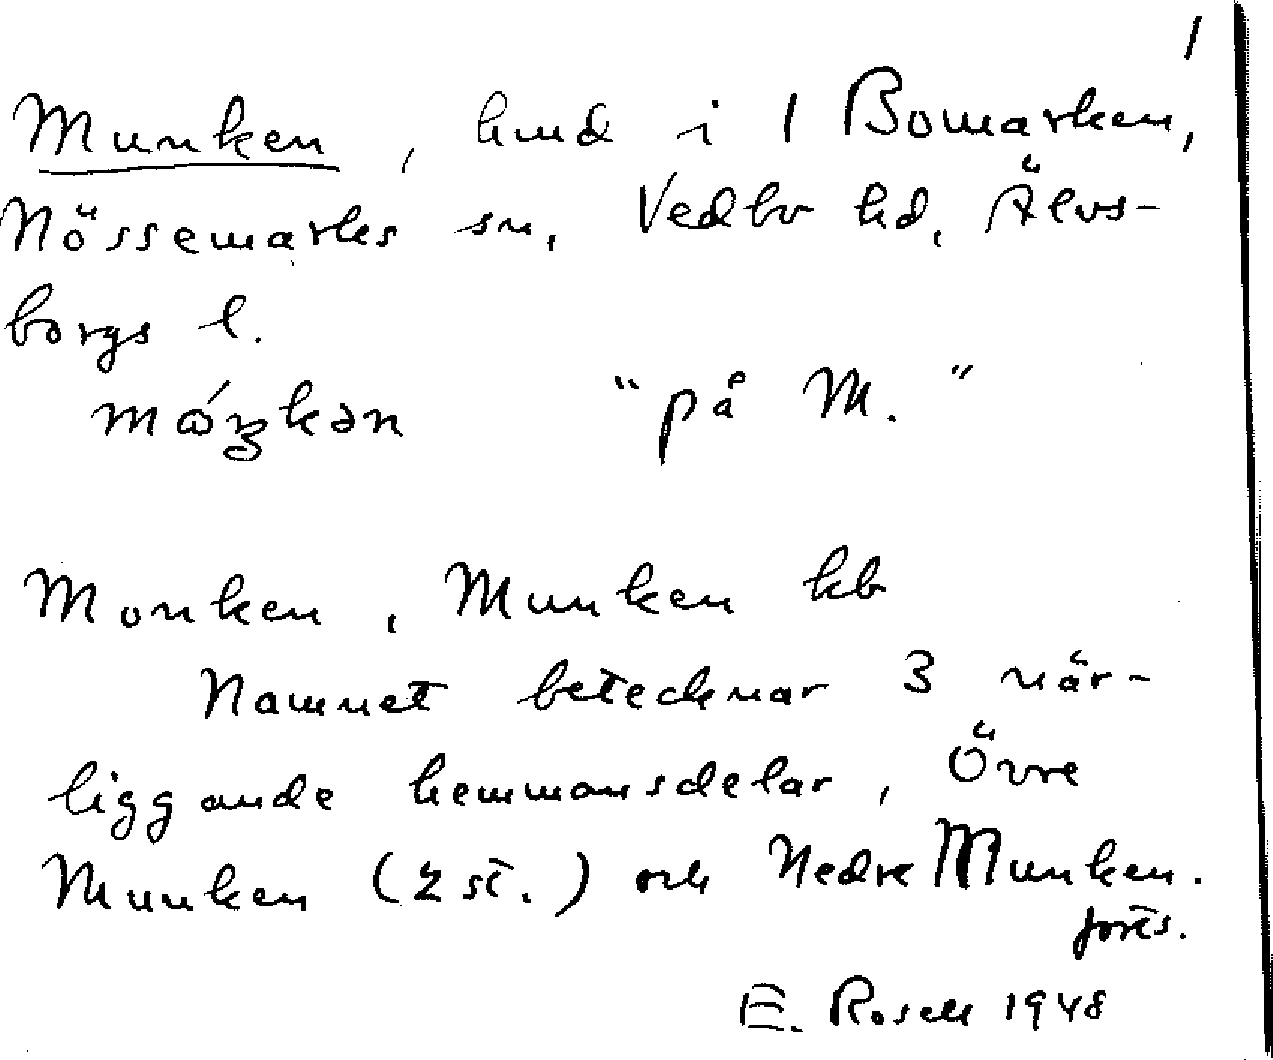 1
Munken, hmd i 1 Bomarken,
Nössemarks sn, Vedbo hd, Älvs-
borgs l.
"på M."
Monken, Munken kb
Namnet betecknar 3 när-
liggande hemmansdelar, Övre
Munken (2 st.) och Nedre Munken.
forts.
E. Rosell 1948